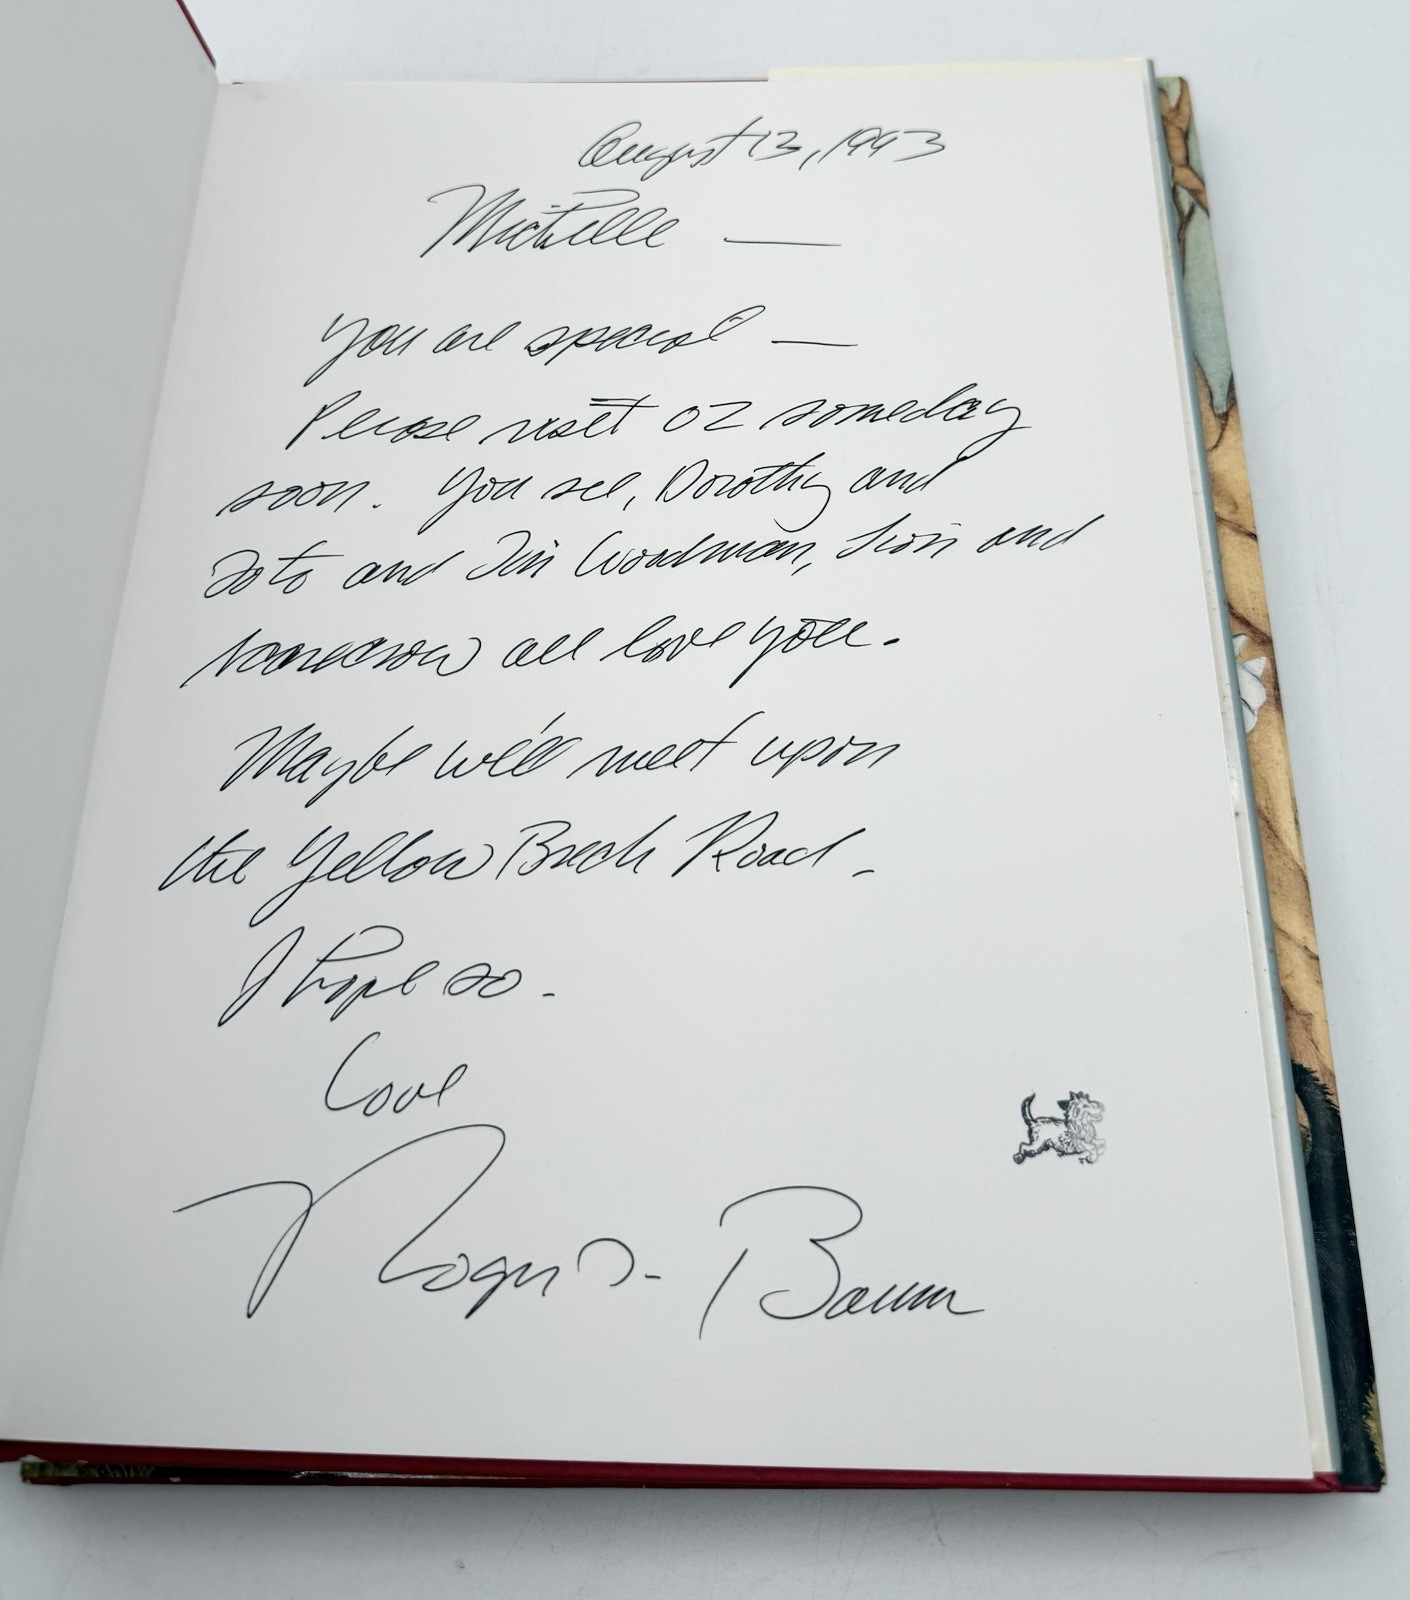 August 13, 1993
Michelle —
You are special —
Please visit OZ someday
soon. You see, Dorothy and
Toto and Tin Woodman, Lion and
Scarecrow all love you.
Maybe we'll meet upon
the Yellow Brick Road.
I hope so.
Love
Roger S. Baum